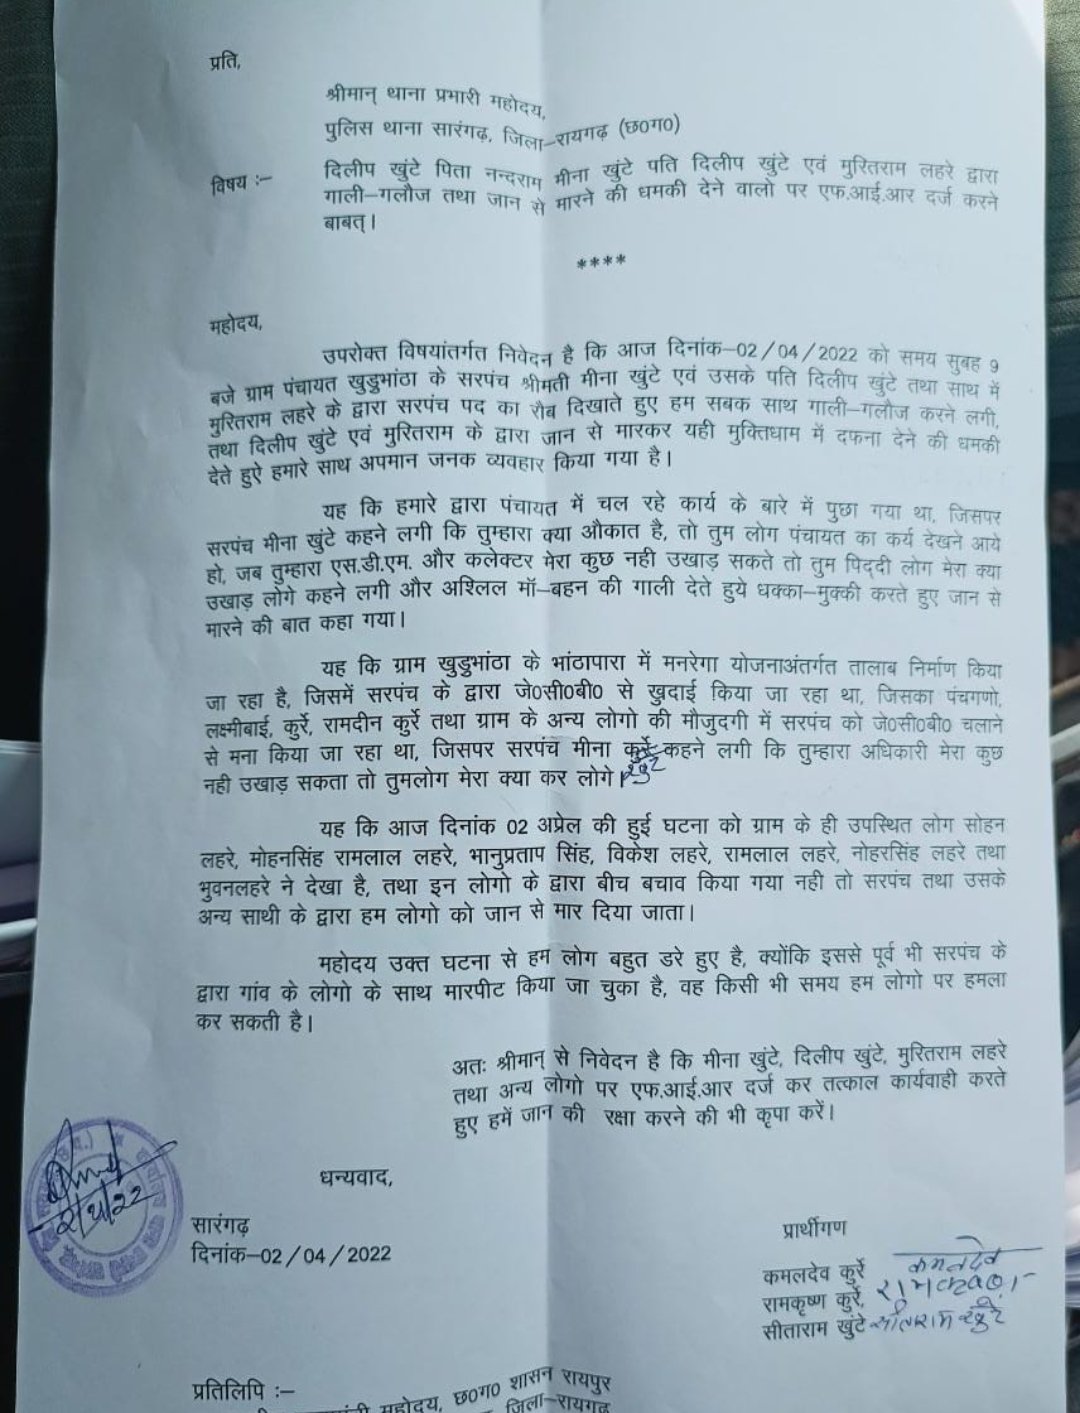 प्रति,
श्रीमान् थाना प्रभारी महोदय,
पुलिस थाना सारंगढ़, जिला–रायगढ़ (छ0ग0)
विषय :–
दिलीप खुंटे पिता नन्दराम मीना खुंटे पति दिलीप खुंटे एवं मुरितराम लहरे द्वारा
गाली–गलौज तथा जान से मारने की धमकी देने वालो पर एफ.आई.आर दर्ज करने
बाबत्।
****
महोदय,
उपरोक्त विषयांतर्गत निवेदन है कि आज दिनांक–02/04/2022 को समय सुबह 9
बजे ग्राम पंचायत खुडुभांठा के सरपंच श्रीमती मीना खुंटे एवं उसके पति दिलीप खुंटे तथा साथ में
मुरितराम लहरे के द्वारा सरपंच पद का रौब दिखाते हुए हम सबक साथ गाली–गलौज करने लगी,
तथा दिलीप खुंटे एवं मुरितराम के द्वारा जान से मारकर यही मुक्तिधाम में दफना देने की धमकी
देते हुऐ हमारे साथ अपमान जनक व्यवहार किया गया है।
यह कि हमारे द्वारा पंचायत में चल रहे कार्य के बारे में पुछा गया था, जिसपर
सरपंच मीना खुंटे कहने लगी कि तुम्हारा क्या औकात है, तो तुम लोग पंचायत का कर्य देखने आये
हो, जब तुम्हारा एस.डी.एम. और कलेक्टर मेरा कुछ नही उखाड़ सकते तो तुम पिद्दी लोग मेरा क्या
उखाड़ लोगे कहने लगी और अश्लिल मॉ–बहन की गाली देते हुये धक्का–मुक्की करते हुए जान से
मारने की बात कहा गया।
यह कि ग्राम खुडुभांठा के भांठापारा में मनरेगा योजनाअंतर्गत तालाब निर्माण किया
जा रहा है, जिसमें सरपंच के द्वारा जे0सी0बी0 से खुदाई किया जा रहा था, जिसका पंचगणो,
लक्ष्मीबाई, कुर्रे, रामदीन कुर्रे तथा ग्राम के अन्य लोगो की मौजुदगी में सरपंच को जे0सी0बी0 चलाने
से मना किया जा रहा था, जिसपर सरपंच मीना कुर्रे कहने लगी कि तुम्हारा अधिकारी मेरा कुछ
नही उखाड़ सकता तो तुमलोग मेरा क्या कर लोगे। खुंटे
यह कि आज दिनांक 02 अप्रेल की हुई घटना को ग्राम के ही उपस्थित लोग सोहन
लहरे, मोहनसिंह रामलाल लहरे, भानुप्रताप सिंह, विकेश लहरे, रामलाल लहरे, नोहरसिंह लहरे तथा
भुवनलहरे ने देखा है, तथा इन लोगो के द्वारा बीच बचाव किया गया नही तो सरपंच तथा उसके
अन्य साथी के द्वारा हम लोगो को जान से मार दिया जाता।
महोदय उक्त घटना से हम लोग बहुत डरे हुए है, क्योंकि इससे पूर्व भी सरपंच के
द्वारा गांव के लोगो के साथ मारपीट किया जा चुका है, वह किसी भी समय हम लोगो पर हमला
कर सकती है।
अतः श्रीमान् से निवेदन है कि मीना खुंटे, दिलीप खुंटे, मुरितराम लहरे
तथा अन्य लोगो पर एफ.आई.आर दर्ज कर तत्काल कार्यवाही करते
हुए हमें जान की रक्षा करने की भी कृपा करें।
धन्यवाद,
2/4/22
सारंगढ़
दिनांक–02/04/2022
प्रार्थीगण
कमलदेव कुर्रे कमलदेव
रामकृष्ण कुर्रे,
सीताराम खुंटे सीताराम खुंटे
प्रतिलिपि :–
महोदय, छ0ग0 शासन रायपुर
जिला–रायगढ़